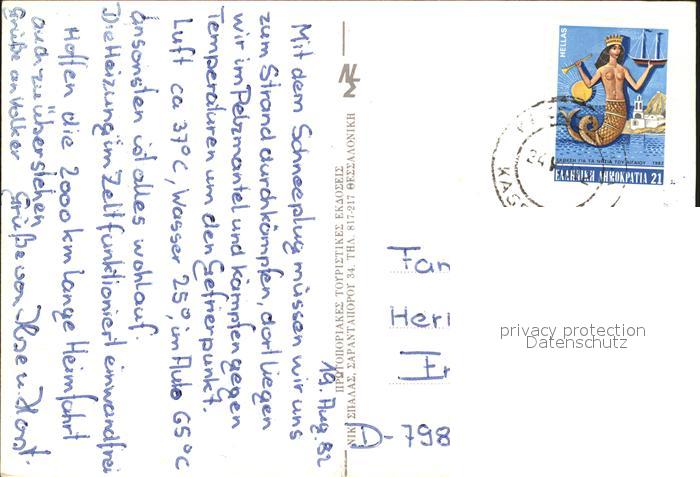 19. Aug. 82
Mit dem Schneeplug müssen wir uns
zum Strand durchkämpfen, dort liegen
wir im Pelzmantel und kämpfen gegen
Temperaturen um den Gefrierpunkt.
Luft ca 37°C, Wasser 25°, im Auto 65°C
Ansonsten ist alles wohlauf.
Die Heizung im Zelt funktioniert einwandfrei
Hoffen die 2000 km lange Heimfahrt
auch zu überstehen
Grüße von Ilse u. Horst.
Grüße an Volker
ΠΡΩΤΟΠΟΡΙΑΚΕΣ ΤΟΥΡΙΣΤΙΚΕΣ ΕΚΔΟΣΕΙΣ
ΝΙΚ. ΣΠΑΛΑΣ, ΣΑΡΑΝΤΑΠΟΡΟΥ 34, ΤΗΛ. 817-217 ΘΕΣΣΑΛΟΝΙΚΗ
HELLAS
ΕΚΔΟΣΗ ΓΙΑ ΤΑ ΝΗΣΙΑ ΤΟΥ ΑΙΓΑΙΟΥ 1982
ΕΛΛΗΝΙΚΗ ΔΗΜΟΚΡΑΤΙΑ 21
Fam
Heri
D-798
privacy protection
Datenschutz